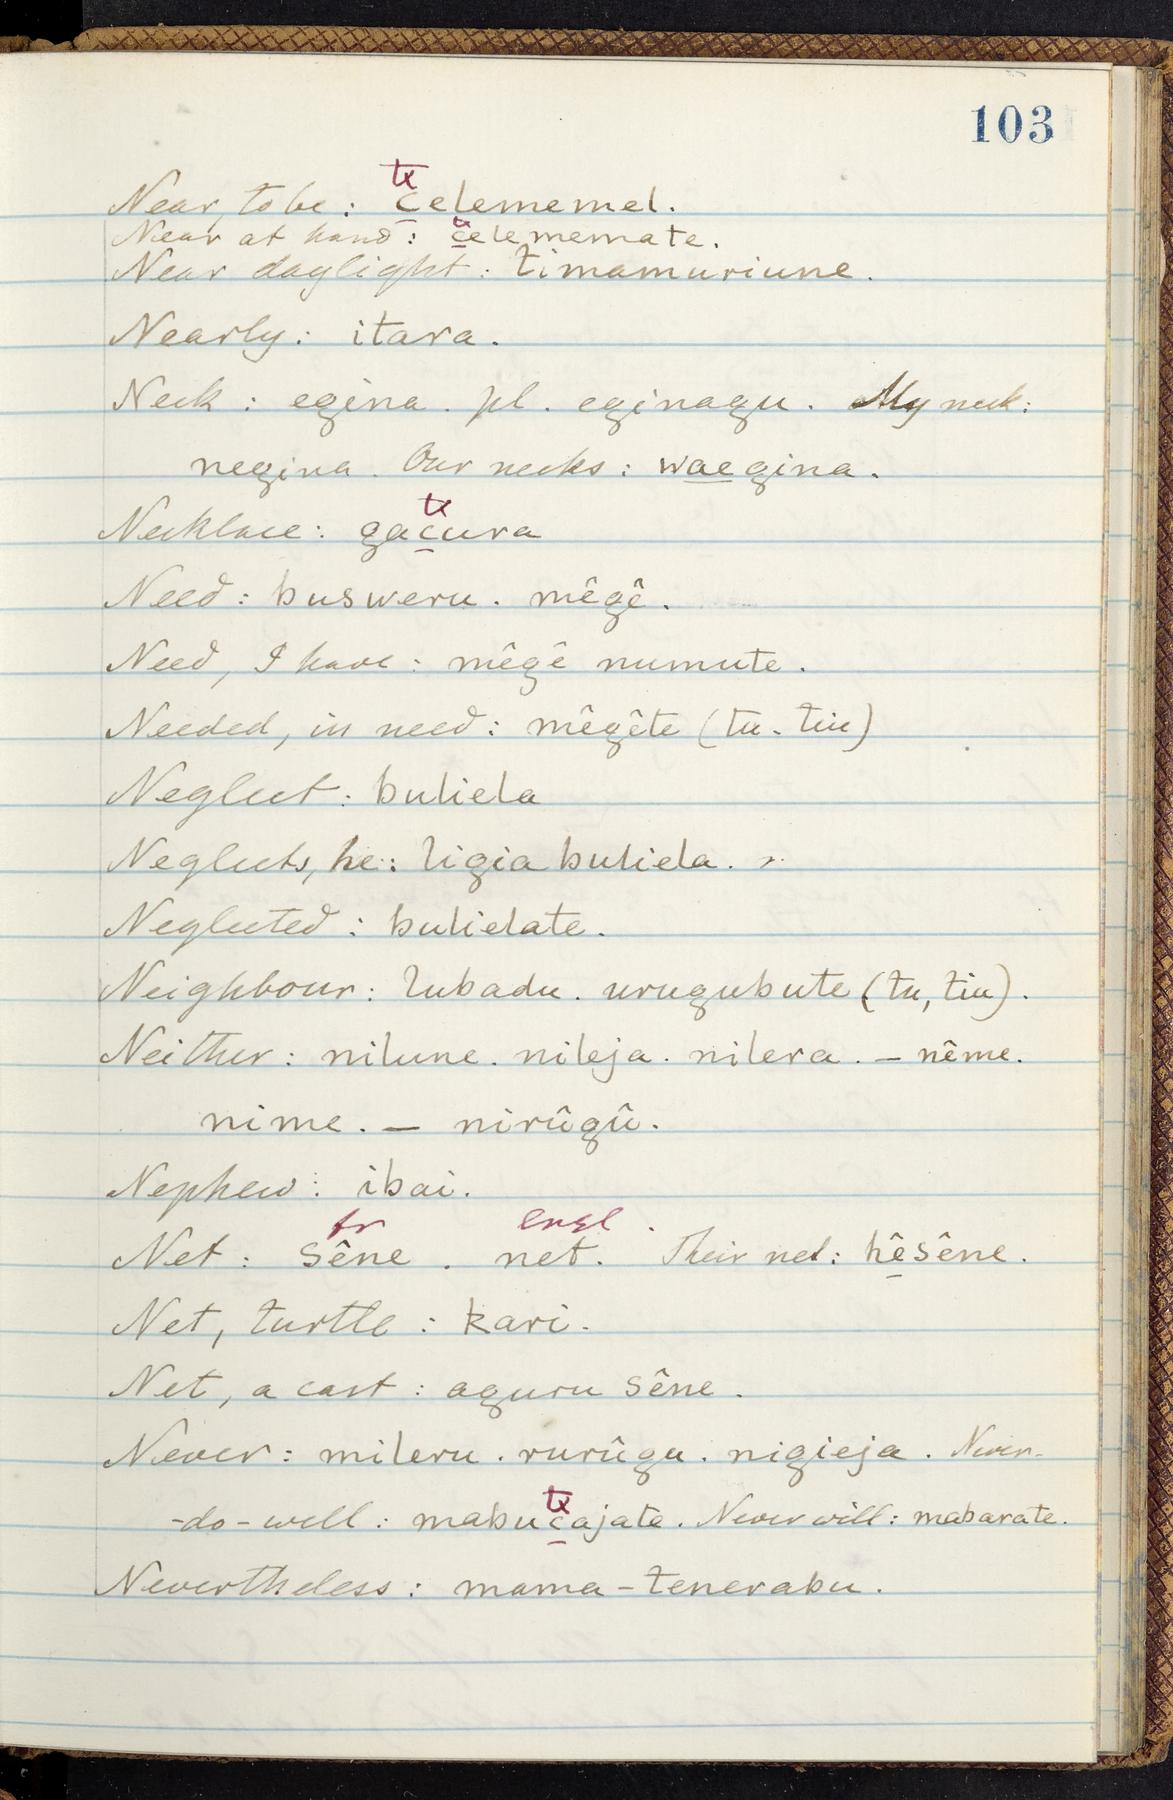 103
Near, to be : c̱elememel.
Near at hand : c̱elememate.
Near daylight : timamuriune.
Nearly : itara.
Neck : egina . pl . eginagu . My neck :
negina . Our necks : waegina .
Necklace : gac̱ura
Need : busweru . mêgê .
Need, I have : mêgê numute .
Needed, in need : mêgête (tu . tiu)
Neglect : buliela
Neglects, he : ligia buliela .
Neglected : bulielate .
Neighbour : lubadu . urugubute (tu, tiu) .
Neither : nilune . nileja . nilera . – nême.
nime . – nirûgû .
Nephew : ibai .
fr engl .
Net : sêne . net . Their net : hêsêne .
Net, turtle : kari .
Net, a cast : aguru sêne .
Never : mileru . rurûgu . nigieja . Never-
-do-well : mabuc̱ajate . Never will : mabarate .
Nevertheless : mama-tenerabu .